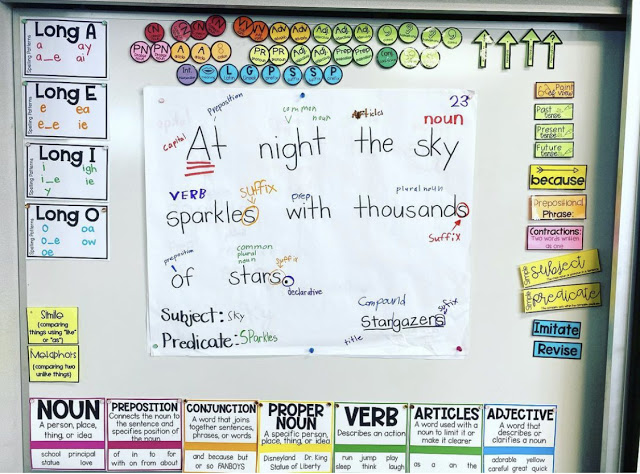 Long A
Spelling Patterns
a ay
a_e ai
Long E
Spelling Patterns
e ea
e_e ie
Long I
Spelling Patterns
i igh
i_e ie
y
Long O
Spelling Patterns
o oa
o_e ow
oe
Simile
(comparing things using "like" or "as")
Metaphors
(comparing two unlike things)
Adv Adv Adj Adj
PN PN A A PR PR Adj Adj Prep Prep
Int. L G P S S P
23
preposition common noun Articles noun
capital
At night the sky
VERB suffix prep plural noun
sparkles with thousands
suffix
preposition common plural noun suffix
of stars.
declarative
Subject: Sky
Predicate: Sparkles
Compound suffix
Stargazers
title
Point of View
Past Tense
Present Tense
Future Tense
because
Prepositional Phrase:
Contractions:
Two words written as one
Simple subject
Simple predicate
Imitate
Revise
NOUN
A person, place, thing, or idea
school principal
statue love
PREPOSITION
Connects the noun to the sentence and specifies position of the noun
of in to for
with on from about
CONJUNCTION
A word that joins together sentences, phrases, or words
and because but
or so FANBOYS
PROPER NOUN
A specific person, place, thing, or idea
Disneyland Dr. King
Statue of Liberty
VERB
Describes an action
run jump play
sleep think laugh
ARTICLES
A word used with a noun to limit it or make it clearer
as a an the
ADJECTIVE
A word that describes or clarifies a noun
adorable yellow
careful great quiet